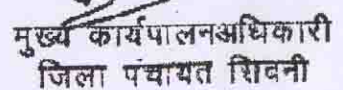 मुख्य कार्यपालनअधिकारी
जिला पंचायत सिवनी